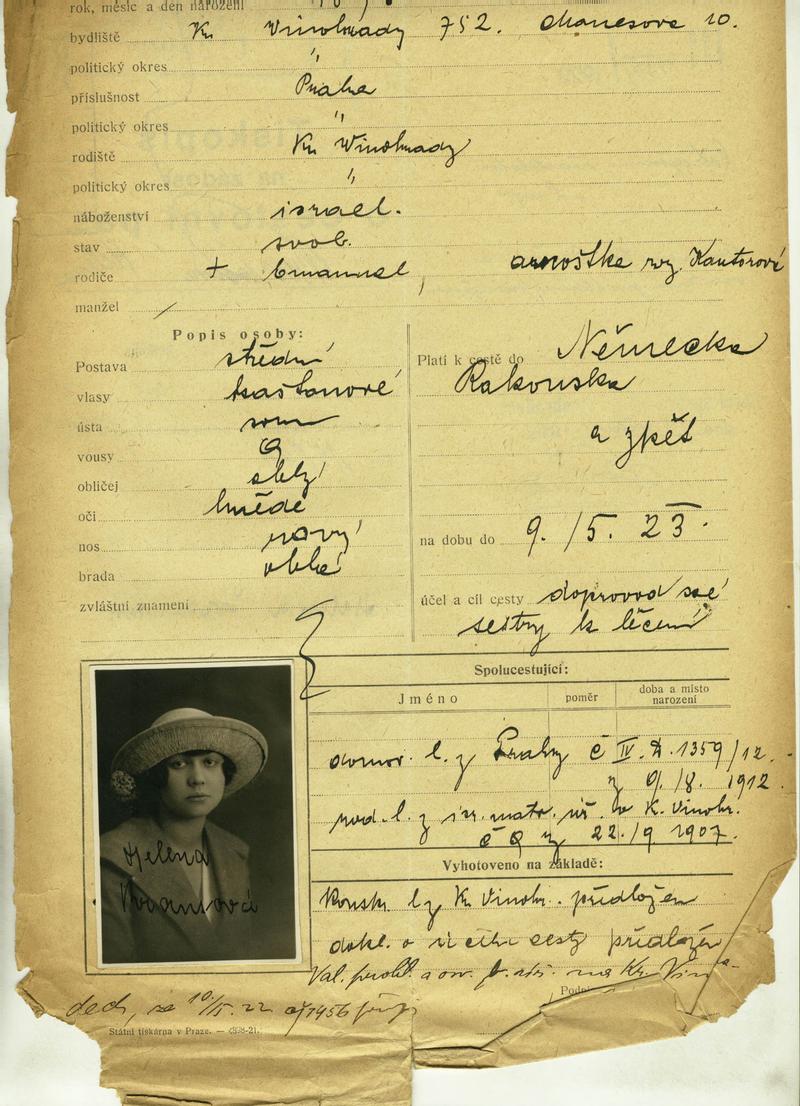 rok, měsíc a den narození
bydliště Kr. Vinohrady 752. Manesova 10.
politický okres "
příslušnost Praha
politický okres "
rodiště Kr. Vinohrady
politický okres "
náboženství israel.
stav svob.
rodiče + Emanuel, Arnoštka roz. Kantorová
manžel /
Popis osoby:
Postava střední
vlasy kaštanové
ústa
vousy
obličej
oči hnědé
nos rovný
brada oblá
zvláštní znamení
Platí k cestě do Německa
Rakouska
a zpět
na dobu do 9./5. 23.
účel a cíl cesty doprovod své
sestry k léčení
Spolucestující:
Jméno poměr doba a místo narození
domov. l. z Prahy č IV. 1359/12.
z 9./8. 1912
rod. l. z isr. matr. úř. v K. Vinohr.
č z 22./9 1907.
Vyhotoveno na základě:
Konskr. l z Kr. Vinohr. předložen
dokl. o účelu cesty předložen
na Kr. Vin
Podpi
Helena
10/5. 22
Státní tiskárna v Praze. —